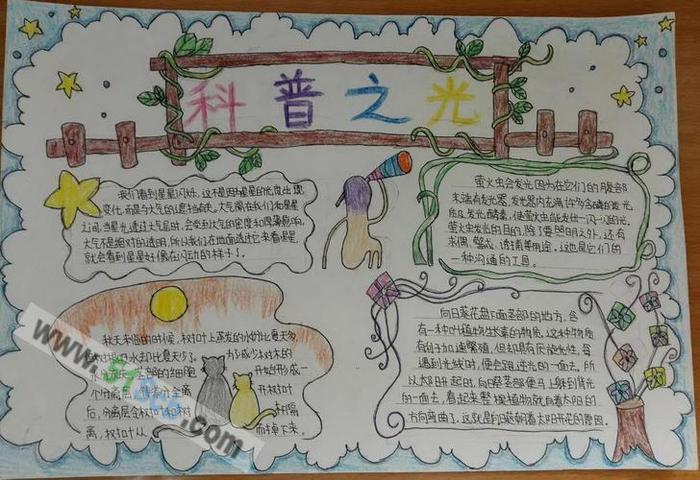 科普之光
我们看到星星闪烁,这不是因为星星的光度出现
变化,而是与大气的遮挡有关。大气隔在我们和星星
之间,当星光透过大气层时,会受到大气的密度和厚薄影响。
大气不是绝对的透明,所以我们在地面透过它来看星星,
就会看到星星好像在闪动的样子了。
萤火虫会发光因为在它们的腹部
末端有发光器,发光器内充满许多含磷的发光
质及发光酵素,使萤火虫能发出一闪一闪的光。
萤火虫发光的目的,除了要照明之外,还有
求偶、警戒、诱捕等用途。这也是它们的
一种沟通的工具。
秋天来临的时候,树叶上蒸发的水份比夏天多,
水却比夏天少了。为了减少树木的
部的细胞 开始形成一
个分离层,等 个分离 开枝叶
后,分离层令枝叶和树 分隔
离,枝叶从 而掉下来。
向日葵花盘下面茎部的地方,含
有一种叶植物生长素的物质。这种物质
有刺子加速繁殖,但却具有厌旋光性,每
遇到光线时,便会跑进光的一面去。所
以太阳升起时,向日葵茎部便马上躲到背光
的一面去,看起来整棵植物就向着太阳的
方向弯曲了。这就是向日葵朝着太阳开花的原因。